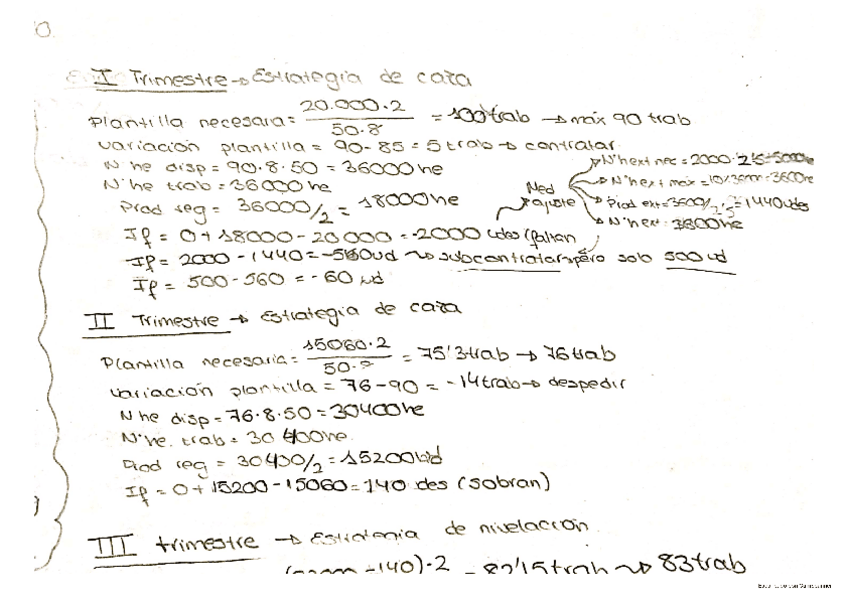 I Trimestre → Estrategia de caza
Plantilla necesaria = 20.000·2 / 50·8 = 100 trab → máx 90 trab
variación plantilla = 90-85 = 5 trab → contratar
Nº he disp = 90·8·50 = 36000 he
Nº he trab = 36000 he
Prod reg = 36000/2 = 18000 he
Med ajuste
Nº h ext nec = 2000·2'5 = 5000 he
Nº h ext máx = 3600 he
Prod ext = 3600/2'5 = 1440 udes
Nº h ext = 3600 he
If = 0+18000-20000 = -2000 udes (faltan
If = 2000-1440 = -560 ud → subcontratar pero solo 500 ud
If = 500-560 = -60 ud
II Trimestre → Estrategia de caza
Plantilla necesaria = 15060·2 / 50·8 = 75'3 trab → 76 trab
variación plantilla = 76-90 = -14 trab → despedir
Nº he disp = 76·8·50 = 30400 he
Nº he. trab = 30400 he
Prod reg = 30400/2 = 15200 ud
If = 0+15200-15060 = 140 des (sobran)
III trimestre → Estrategia de nivelación
-140)·2 = 82'15 trab → 83 trab